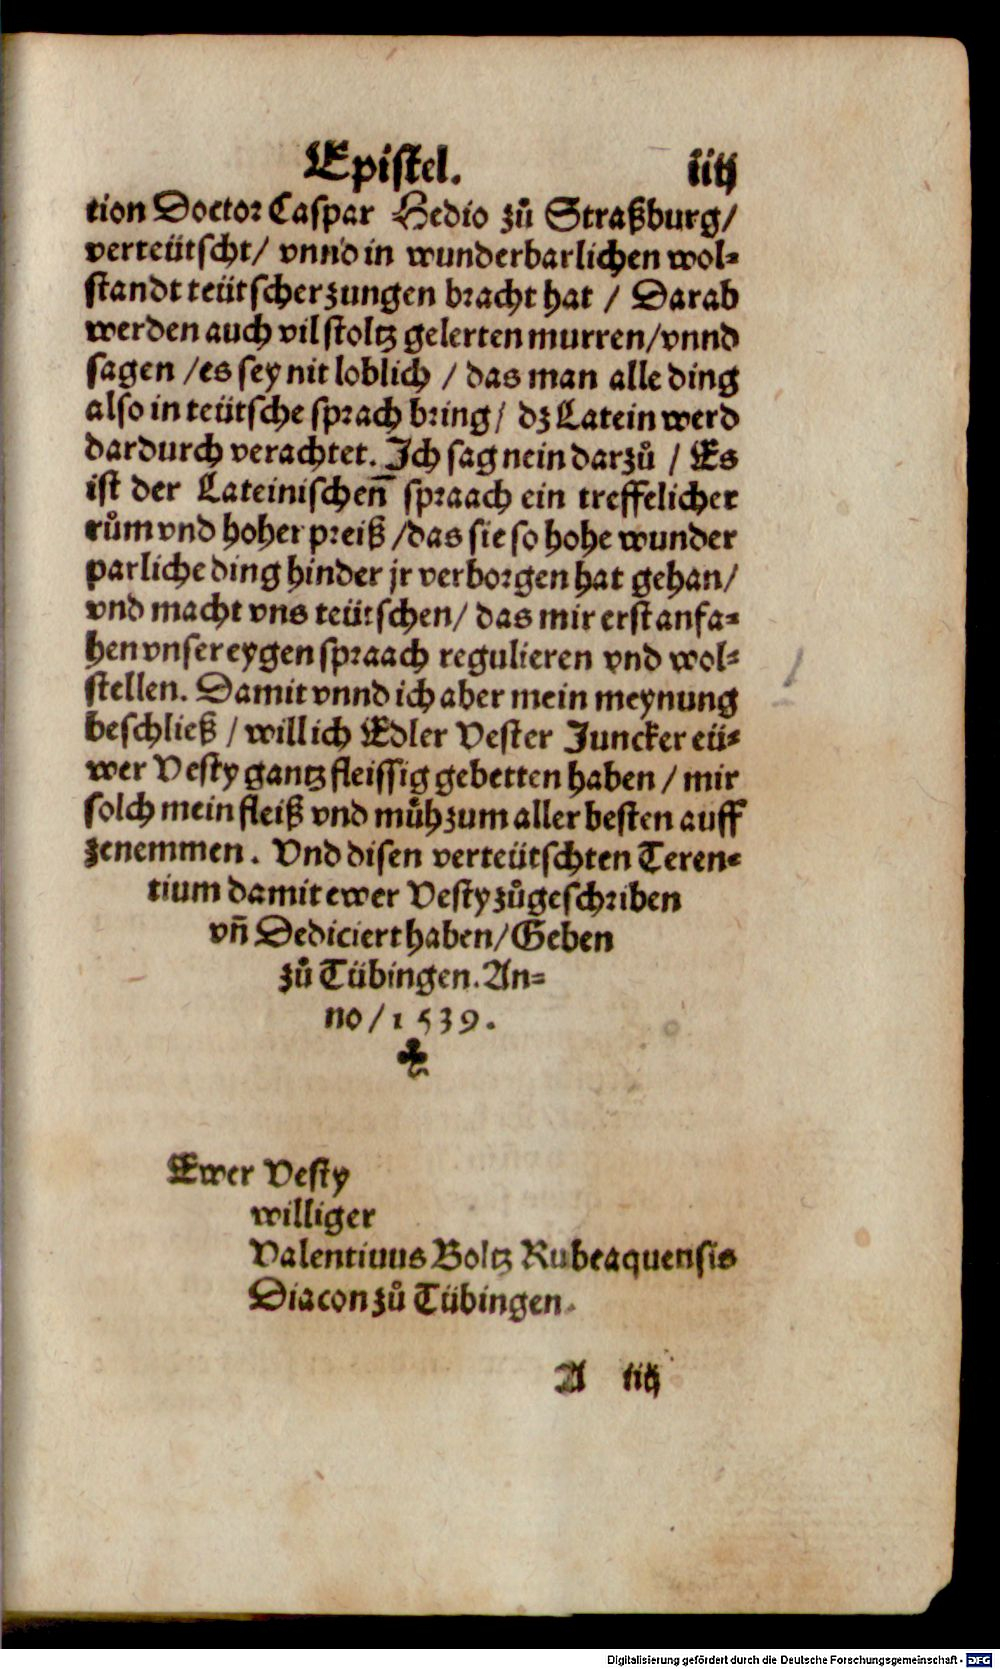 Epistel. iij
tion Doctor Caspar Hedio zů Straßburg/
verteütscht/ vnnd in wunderbarlichen wol-
standt teütscher zungen bracht hat / Darab
werden auch vil stoltz gelerten murren/vnnd
sagen /es sey nit loblich / das man alle ding
also in teütsche sprach bring/ dz Latein werd
dardurch verachtet. Ich sag nein darzů / Es
ist der Lateinischen̄ spraach ein treffelicher
rům vnd hoher preiß /das sie so hohe wunder
parliche ding hinder jr verborgen hat gehan/
vnd macht vns teütschen/ das mir erst anfa-
hen vnser eygen spraach regulieren vnd wol-
stellen. Damit vnnd ich aber mein meynung
beschließ / will ich Edler Vester Juncker eü-
wer Vesty gantz fleissig gebetten haben / mir
solch mein fleiß vnd můh zum aller besten auff
zenemmen. Vnd disen verteütschten Teren-
tium damit ewer Vesty zůgeschriben
vñ Dediciert haben/Geben
zů Tübingen. An-
no/1539.
Ewer Vesty
williger
Valentinus Boltz Rubeaquensis
Diacon zů Tübingen.
A iij
Digitalisierung gefördert durch die Deutsche Forschungsgemeinschaft - DFG